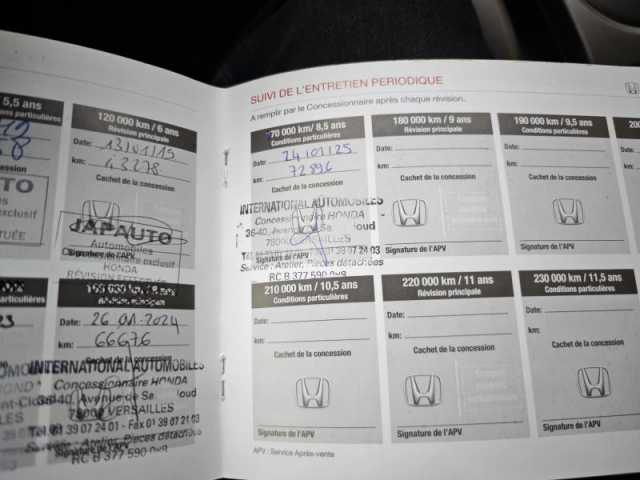 5,5 ans
particulières
120 000 km / 6 ans
Révision principale
Date: 13/01/15
km: 43278
Cachet de la concession
JAPAUTO
Automobiles
exclusif
HONDA
Date: 26 01 2024
km: 66676
INTERNATIONAL AUTOMOBILES
Concessionnaire HONDA
36-40, Avenue de Sa... loud
78000 VERSAILLES
Tél 01 39 07 24 01 - Fax 01 39 07 21 03
Service: Atelier, Pièces détachées
RC B 377 590
Signature de l'APV
SUIVI DE L'ENTRETIEN PERIODIQUE
A remplir par le Concessionnaire après chaque révision.
70 000 km / 8,5 ans
Conditions particulières
Date: 24/01/25
km: 72896
Cachet de la concession
INTERNATIONAL AUTOMOBILES
Concessionnaire HONDA
36-40, Avenue de Sa... loud
78000 VERSAILLES
01 39 07 24 03
Signature de l'APV
Service: Atelier, Pièces détachées
RC B 377 590
180 000 km / 9 ans
Révision principale
Date:
km:
Cachet de la concession
Signature de l'APV
190 000 km / 9,5 ans
Conditions particulières
Date:
km:
Cachet de la concession
Signature de l'APV
210 000 km / 10,5 ans
Conditions particulières
Date:
km:
Cachet de la concession
Signature de l'APV
220 000 km / 11 ans
Révision principale
Date:
km:
Cachet de la concession
Signature de l'APV
230 000 km / 11,5 ans
Conditions particulières
Date:
km:
Cachet de la concession
Signature de l'APV
APV : Service Après-vente